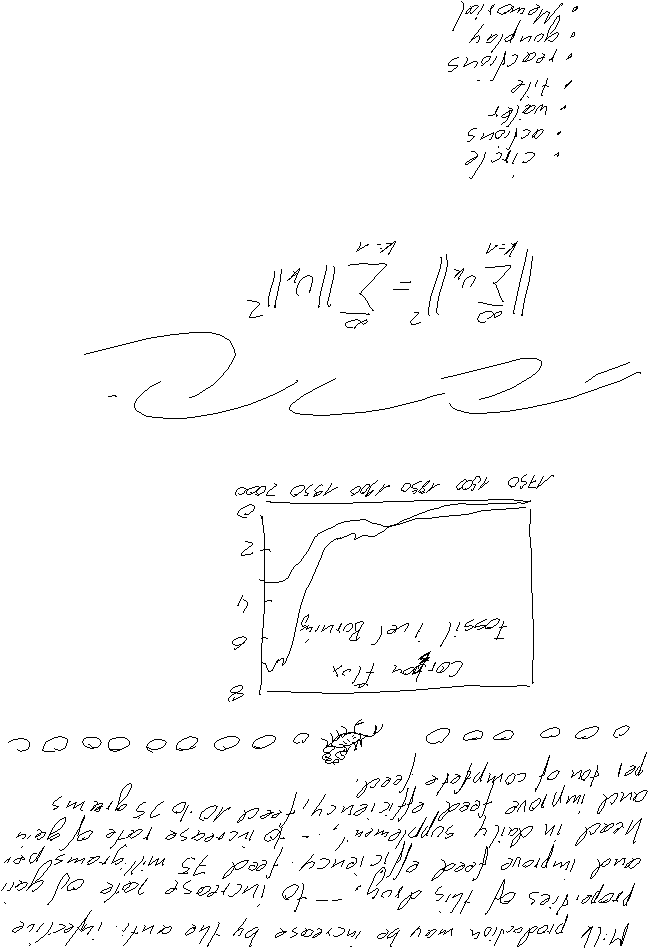 Milk production may be increase by the anti infective
properties of this drug, -- to increase rate of gain
and improve feed efficiency. feed 75 milligrams per
head in daily supplement", -- to increase rate of gain
and improve feed efficiency, feed 10 to 75 grams
per ton of complete feed.
8
6
4
2
0
Carbon Flux
Fossil Fuel Burning
1750 1800 1850 1900 1950 2000
‖∑_{k=1}^{∞} υ_k‖² = ∑_{k=1}^{∞} ‖υ_k‖²
• circle
• actions
• water
• tile
• reactions
• gunplay
• Memorial